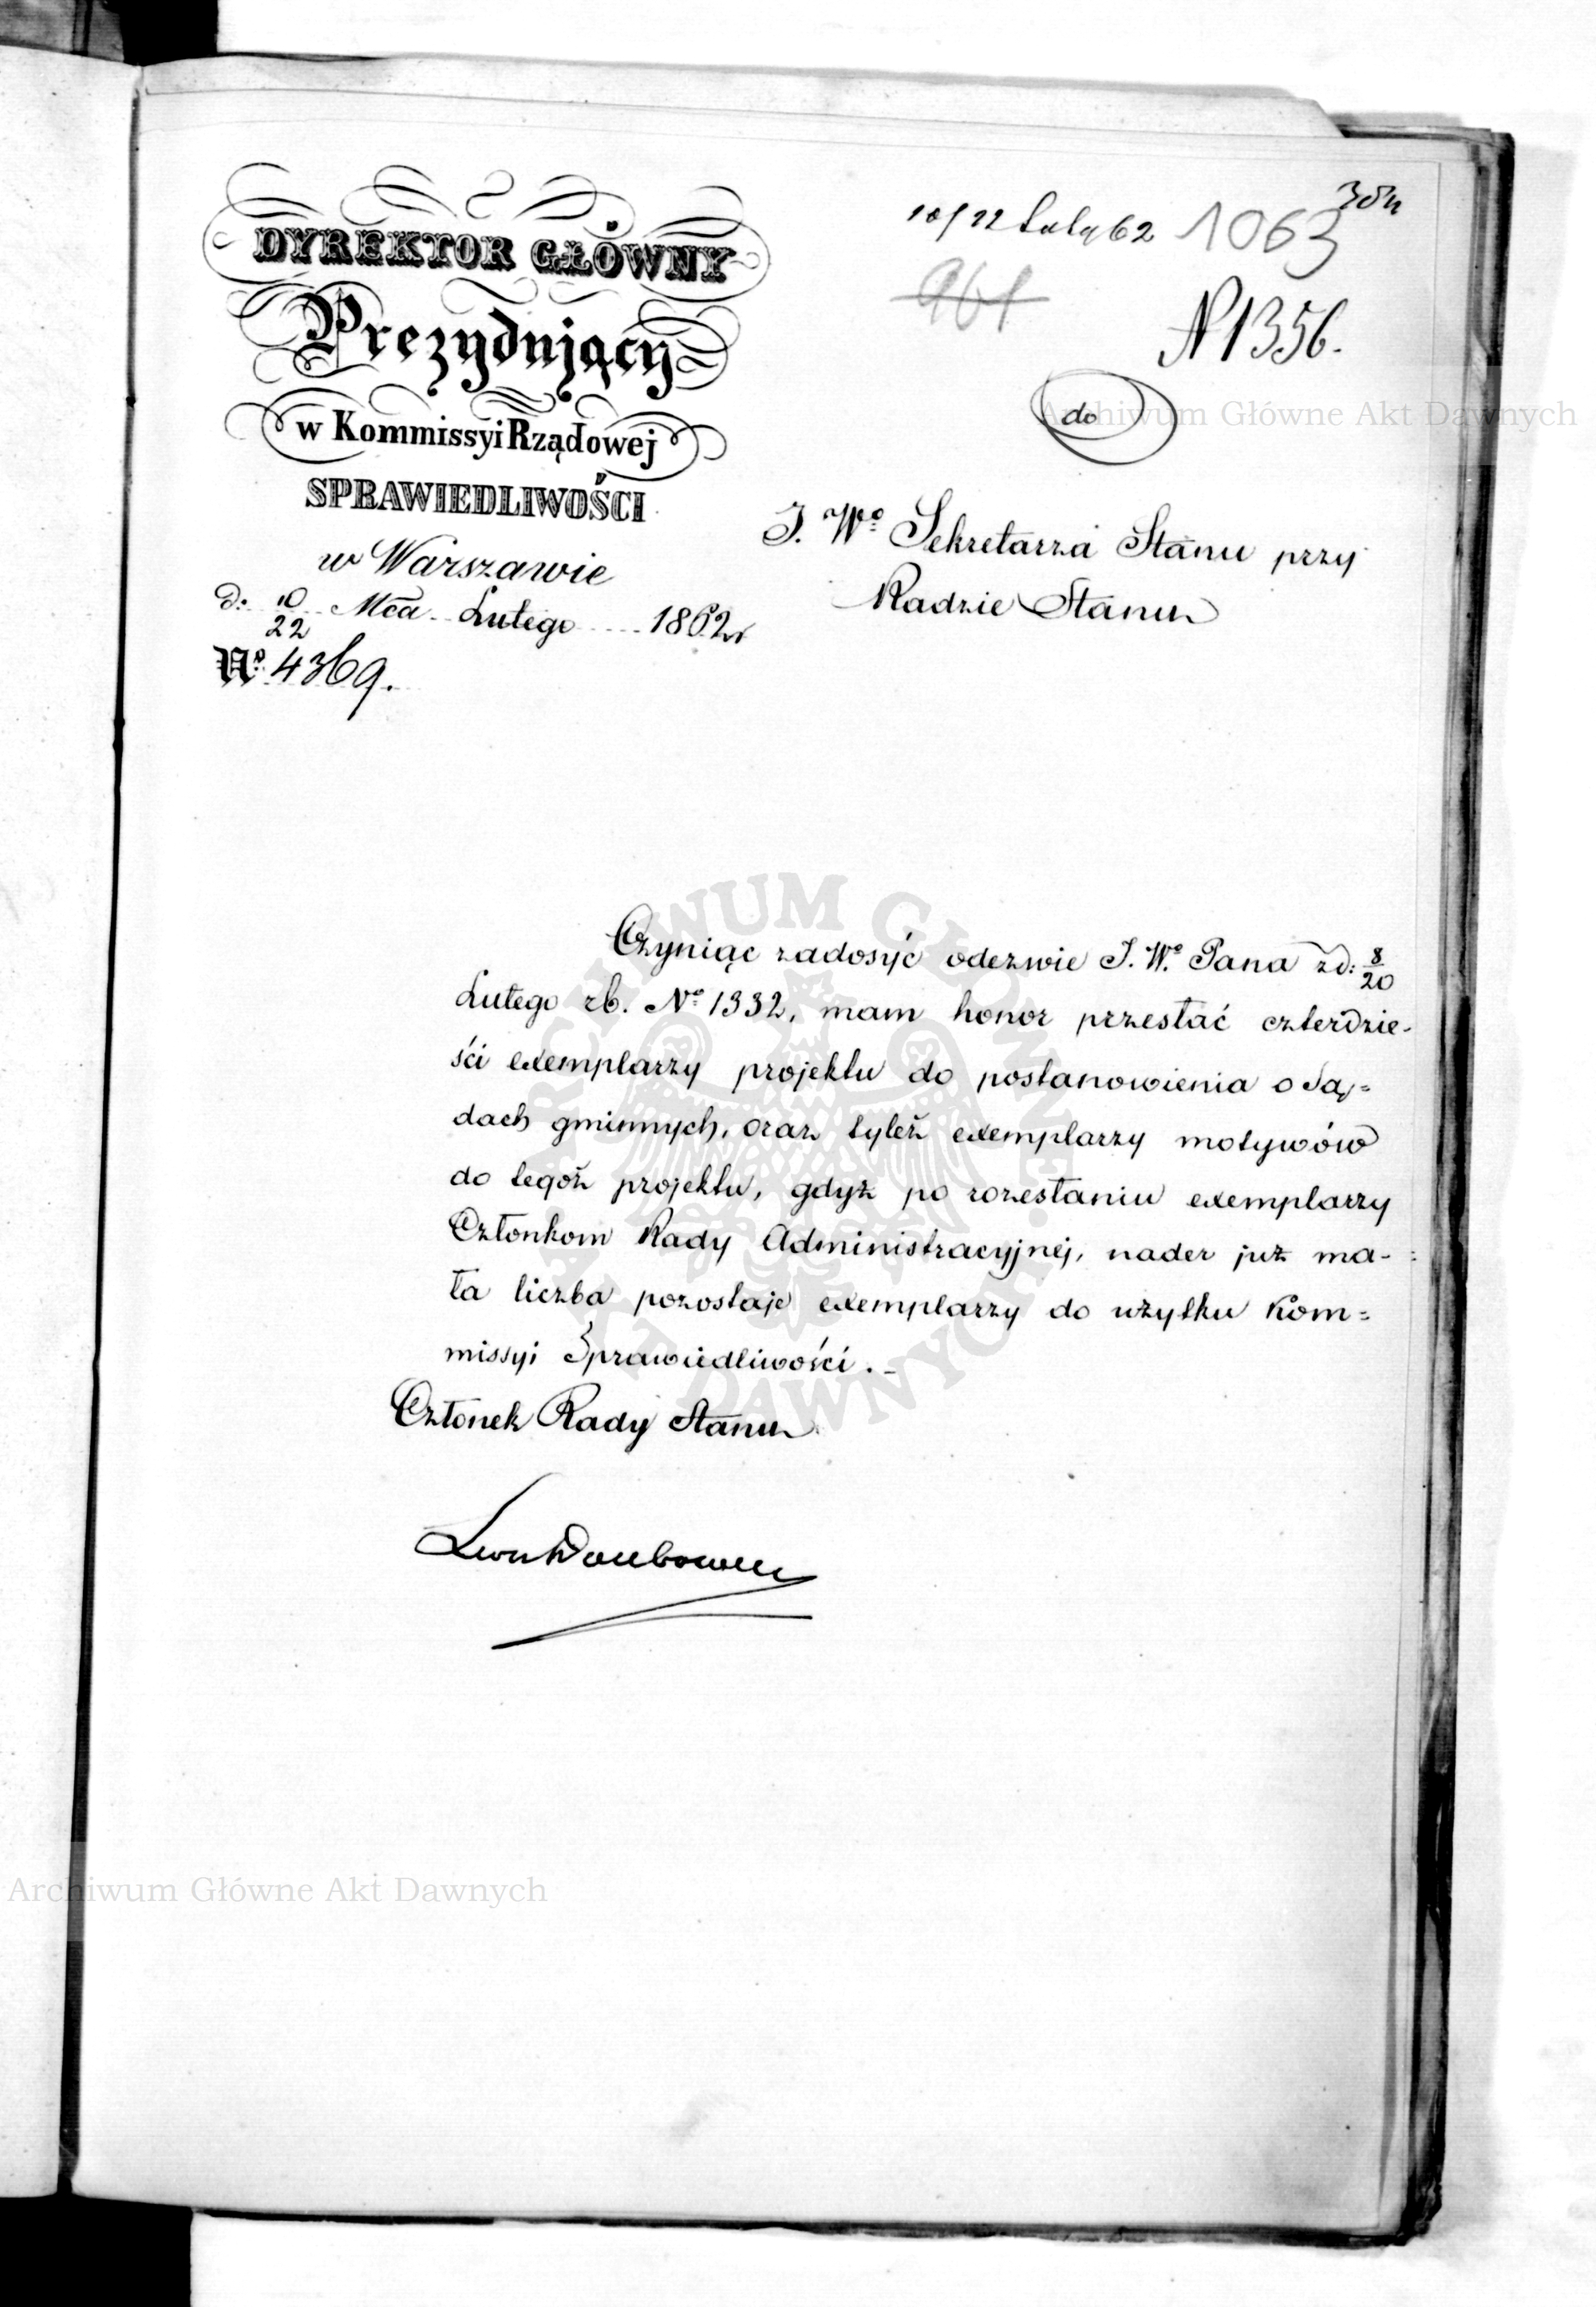 DYREKTOR GŁÓWNY
Prezydujący
w Kommissyi Rządowej
SPRAWIEDLIWOŚCI
w Warszawie
d: 10/22 Mca Lutego 1862 r
No 4369.
10/22 Lutg 62 1063
961
N 1356.
do
J. Wo Sekretarza Stanu przy
Radzie Stanu
Czyniąc zadosyć odezwie J. Wo Pana z d: 8/20
Lutego rb. No 1332, mam honor przesłać czterdzie-
ści exemplarzy projektu do postanowienia o Są=
dach gminnych, oraz tyleż exemplarzy motywów
do tegoż projektu, gdyż po rozesłaniu exemplarzy
Członkom Rady Administracyjnej, nader już ma-
ła liczba pozostaje exemplarzy do użytku Kom=
missyi Sprawiedliwości.-
Członek Rady Stanu
Archiwum Główne Akt Dawnych
ARCHIWUM GŁÓWNE AKT DAWNYCH
Archiwum Główne Akt Dawnych